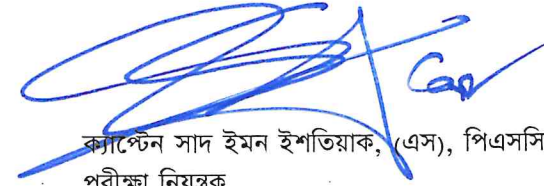 ক্যাপ্টেন সাদ ইমন ইশতিয়াক, (এস), পিএসসি
পরীক্ষা নিয়ন্ত্রক